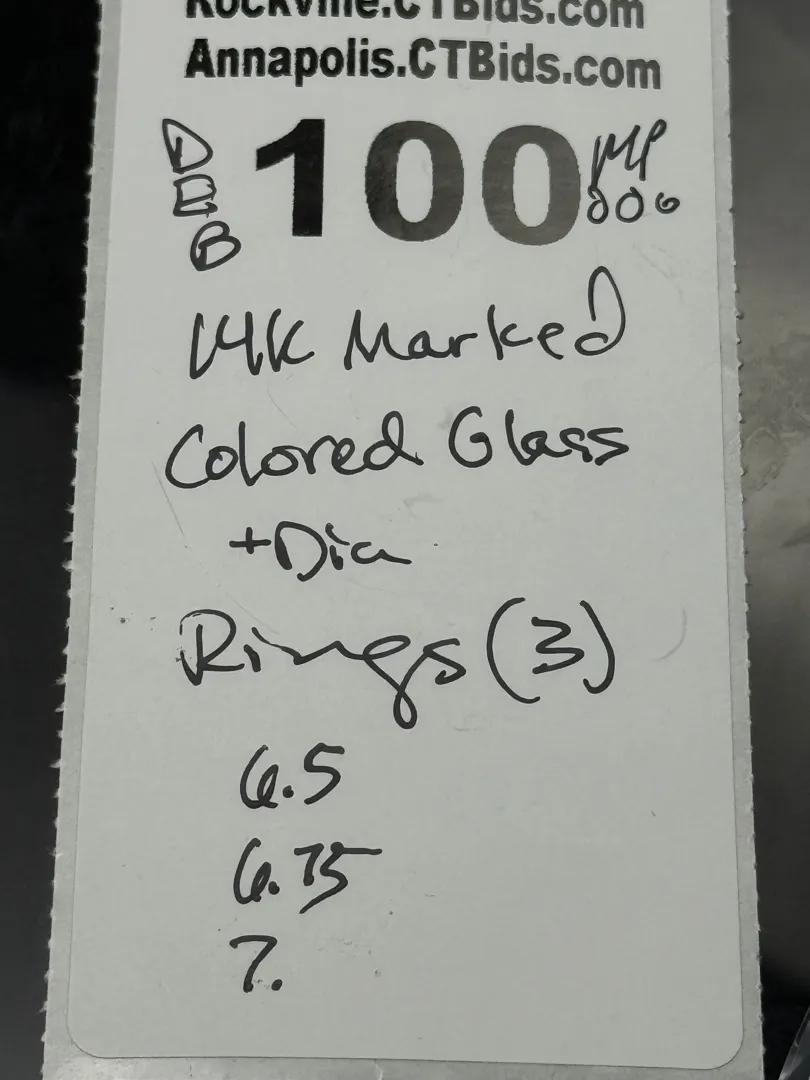 Rockville.CTBids.com
Annapolis.CTBids.com
DEB 100
006
14K Marked
Colored Glass
+Dia
Rings (3)
6.5
6.75
7.